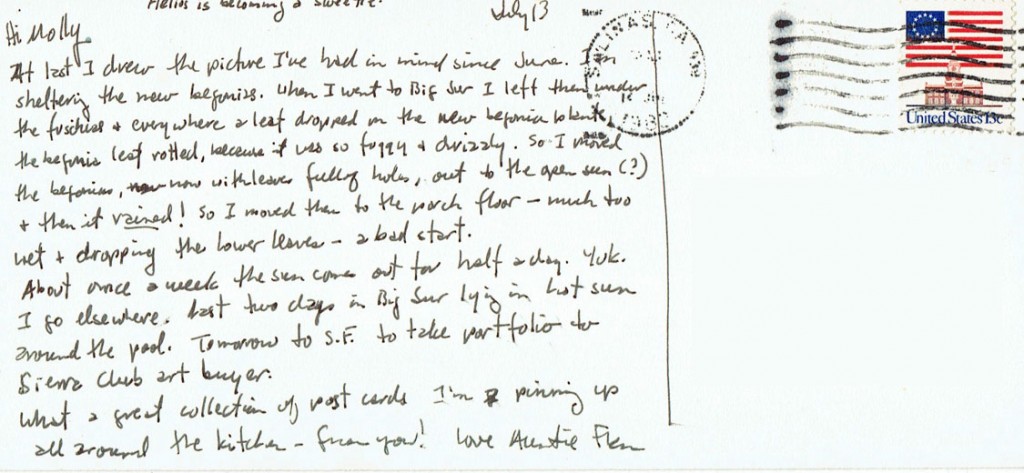 Helios is becoming a sweetie.
July 13
Hi Molly
At last I drew the picture I've had in mind since June. I'm
sheltering the new begonias. When I went to Big Sur I left them under
the fuschias + everywhere a leaf dropped on the new begonia plants,
the begonia leaf rotted, because it was so foggy & drizzly. So I moved
the begonias, now with leaves full of holes, out to the open sun (?)
+ then it rained! So I moved them to the porch floor - much too
wet + dropping the lower leaves - a bad start.
About once a week the sun comes out for half a day. Yuk.
I go elsewhere. Last two days in Big Sur lying in hot sun
around the pool. Tomorrow to S.F. to take portfolio to
Sierra Club art buyer.
What a great collection of post cards I'm pinning up
all around the kitchen - from you! Love Auntie
SALINAS, CA
United States 13c